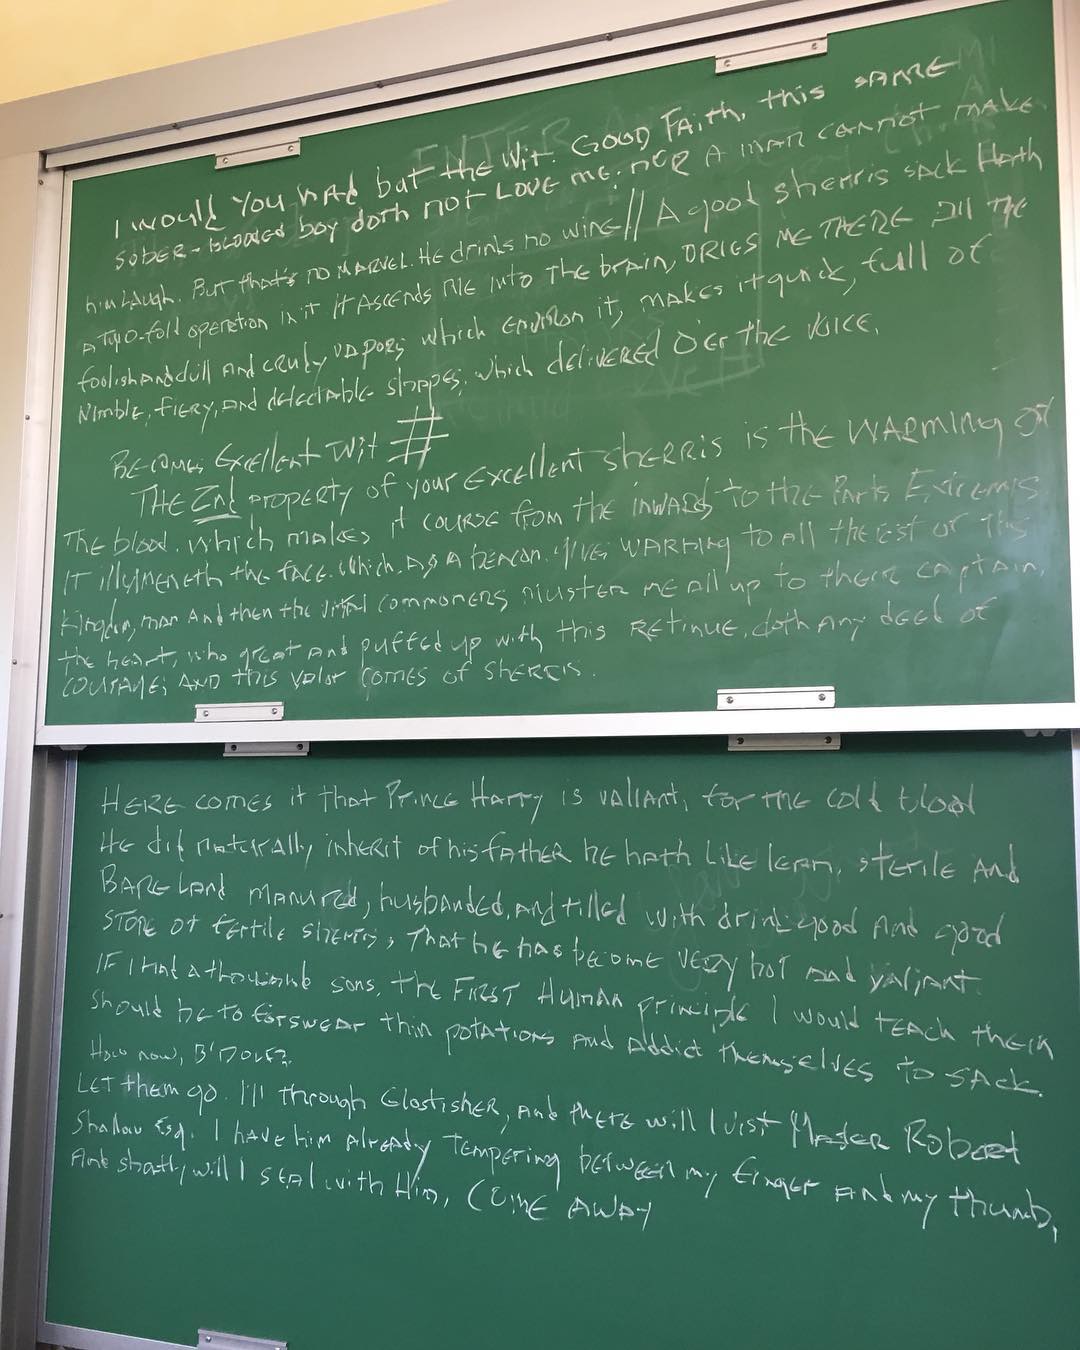 I would You had but the Wit. GOOD FAith, this SAME
SOBER-BLOODED boy doth NOT LOVE ME; NOR A man cannot make
him LAugh. But that's no MARVEL. HE drinks no wine // A good sherris sack Hath
A two-fold operation in it It ASCENDS ME INTO THE brain, DRIES ME THERE All THE
foolish And dull And cruby VAPORS which ENVIRON it, makes it quick, full of
Nimble, fiERY, AND delectable shappes, which delivered O'er the VOICE,
BECOMES Excellent Wit #
THE 2nd property of your Excellent sherris is the WARMING of
The blood. which makes it course from the INWARDS to the Parts Extremes
IT illumeneth the face. which, AS A beacon. gives WARNING to all the rest of This
kingdom, man And then the vital commoners muster me all up to their captain,
the heart, who great And puffed up with this RETINUE, doth Any deed of
COURAGE; AND this valor comes of sherris.
HERE comes it that Prince Harry is valiant, for THE cold blood
HE did naturally inherit of his father he hath LiKE lean, sterile And
BARE LAnd manured, husbanded, and tilled with drink good And good
STORE of fertile sherris, That he has become very hot and valiant.
IF I Had a thousand sons, the FIRST Human principle I would TEACH them
Should be to forswear thin potations AND Addict THEMSELVES to SACK.
How now,
LET them go. I'll through Glostisher, AND there will I visit Master Robert
Shallow Esq. I have him Already tempering between my finger And my thumb,
And shortly will I seal with Him, COME AWAY